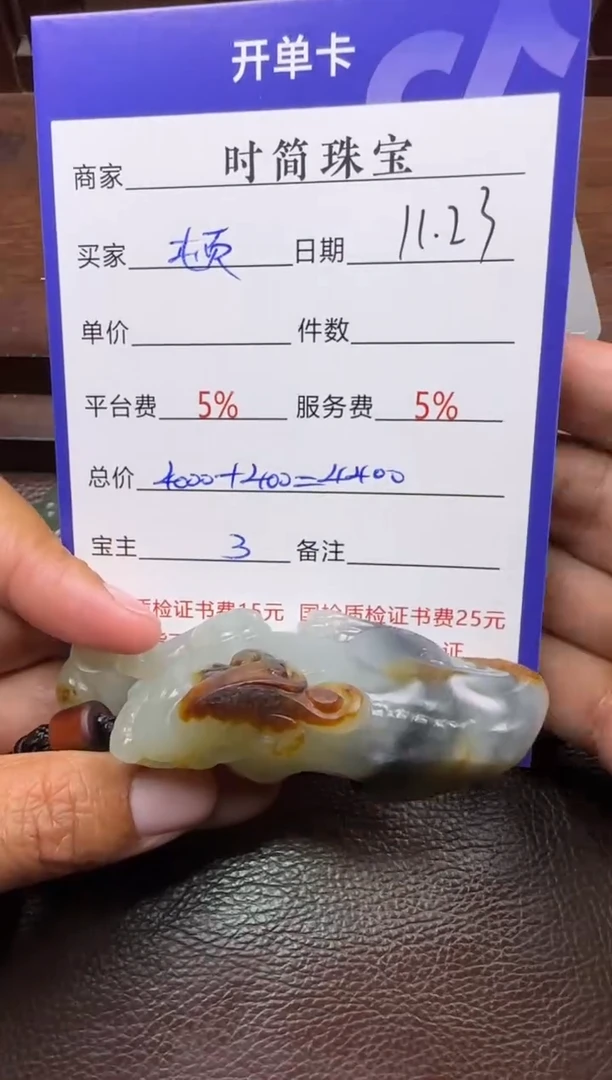 开单卡
商家 时简珠宝
买家 顿 日期 11.23
单价 件数
平台费 5% 服务费 5%
总价 4000+400=4400
宝主 3 备注
质检证书费15元 国检质检证书费25元
证